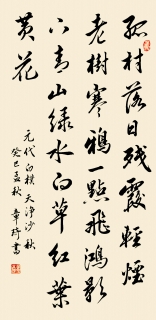 孤村落日残霞轻烟
老树寒鸦一点飞鸿影
下青山绿水白草红葉
黄花
元代白樸天净沙秋
癸巳孟秋章琦書